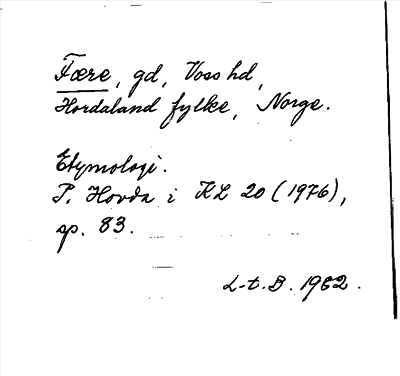 Fære, gd, Voss hd,
Hordaland fylke, Norge.
Etymologi.
P. Hovda i KL 20 (1976),
sp. 83.
L-t. B. 1982.